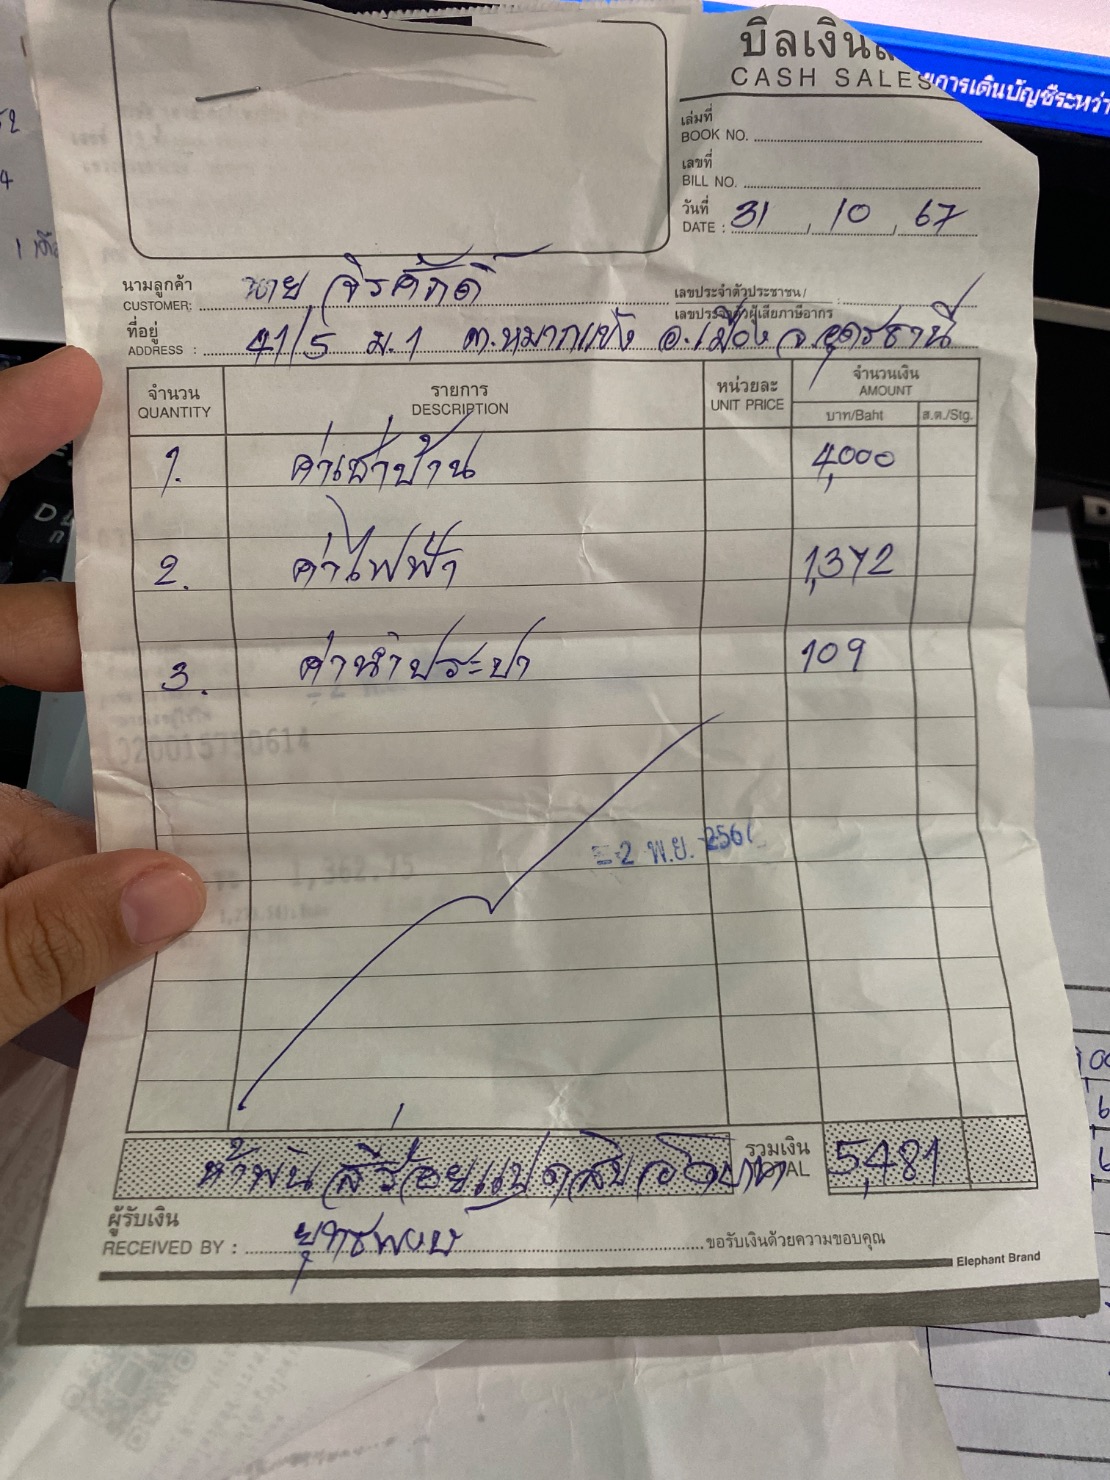 บิลเงินส
CASH SALES
ายการเดินบัญชีระหว่า
เล่มที่
BOOK NO.
เลขที่
BILL NO.
วันที่
DATE : 31 / 10 / 67
นามลูกค้า
CUSTOMER: นาย จิรศักดิ์
เลขประจำตัวประชาชน / :
เลขประจำตัวผู้เสียภาษีอากร
ที่อยู่
ADDRESS : 41/5 ม.1 ต.หมากแข้ง อ.เมือง จ.อุดรธานี
จำนวน รายการ หน่วยละ จำนวนเงิน
QUANTITY DESCRIPTION UNIT PRICE AMOUNT
บาท/Baht ส.ต./Stg.
1. ค่าเช่าบ้าน 4,000
2. ค่าไฟฟ้า 1,372
3. ค่าน้ำประปา 109
020015750614
= 2 พ.ย. 256
1,368.75
ห้าพันสี่ร้อยแปดสิบเอ็ดบาท รวมเงิน 5,481
TOTAL
ผู้รับเงิน
RECEIVED BY : ขอรับเงินด้วยความขอบคุณ
Elephant Brand